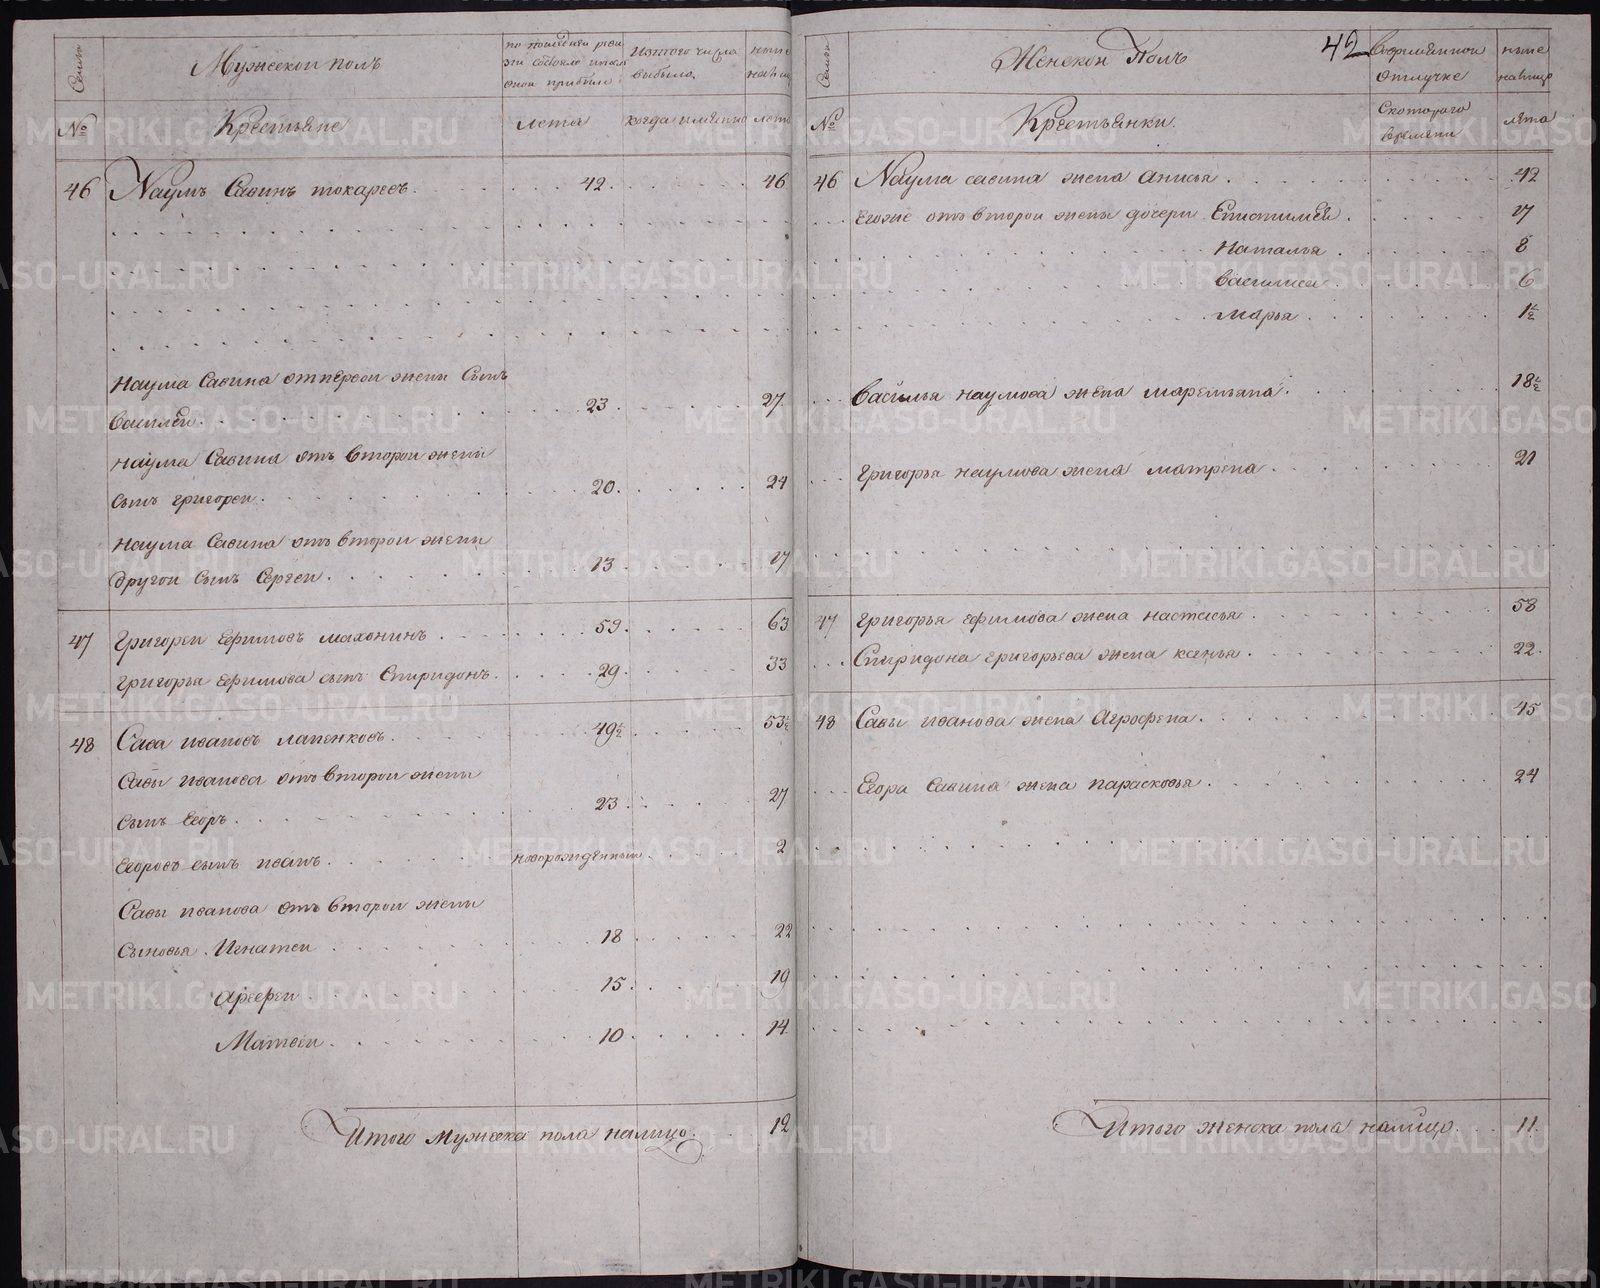 Семьи
Мужескои полъ
по последнеи реви
зіи состояло и после
онои прибыло
Изтого числа
выбыло
ныне
налицо
№
Крестьяне
лета
когда имянно
лета
46 Наумъ Савинъ токаревъ 42 46
Наума Савина отпервои жены Сынъ
Василеи 23 27
Наума Савина отъ второи жены
Сынъ григореи 20 24
Наума Савина отъ второи жены
другои Сынъ Сергеи 13 17
47 Григореи Ефимовъ махонинъ 59 63
Григорья Ефимова сынъ Спиридонъ 29 33
48 Сава ивановъ лапенковъ 49½ 53½
Савы иванова отъ второи жены
Сынъ Егоръ 23 27
Егоровъ сынъ иванъ новорожденныи 2
Савы иванова отъ второи жены
Сыновья Игнатеи 18 22
Арефеи 15 19
Матвеи 10 14
Итого мужеска пола налицо 12
42
Семьи
Женскои Полъ
Вовремяннои
отлучке
ныне
налицо
№
Крестьянки
Скотораго
времени
лета
46 Наума савина жена анисья 42
Егоже отъ второи жены дочери Епистимея 17
Наталья 8
Василиса 6
марья 1½
Василья наумова жена маремьяна 18½
Григорья наумова жена матрена 21
47 Григорья Ефимова жена настасья 58
Спиридона григорьева жена ксенья 22
48 Савы иванова жена Агрофена 45
Егора Савина жена парасковья 24
Итого женска пола налицо 11
METRIKI.GASO-URAL.RU